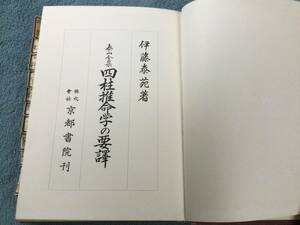 伊藤泰苑著
泰山全集 四柱推命学の要譯
株式會社 京都書院刊